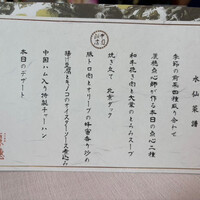 水仙菜譜
季節の前菜四種取り合わせ
点心師が作る本日の点心二種
和牛挽き肉と大葉のとろみスープ
焼き立て 北京ダック
豚トロ肉とオリーブの蜂蜜香り炒め
揚げ豆腐とキノコのオイスターソース煮込み
中国ハム入り特製チャーハン
本日のデザート